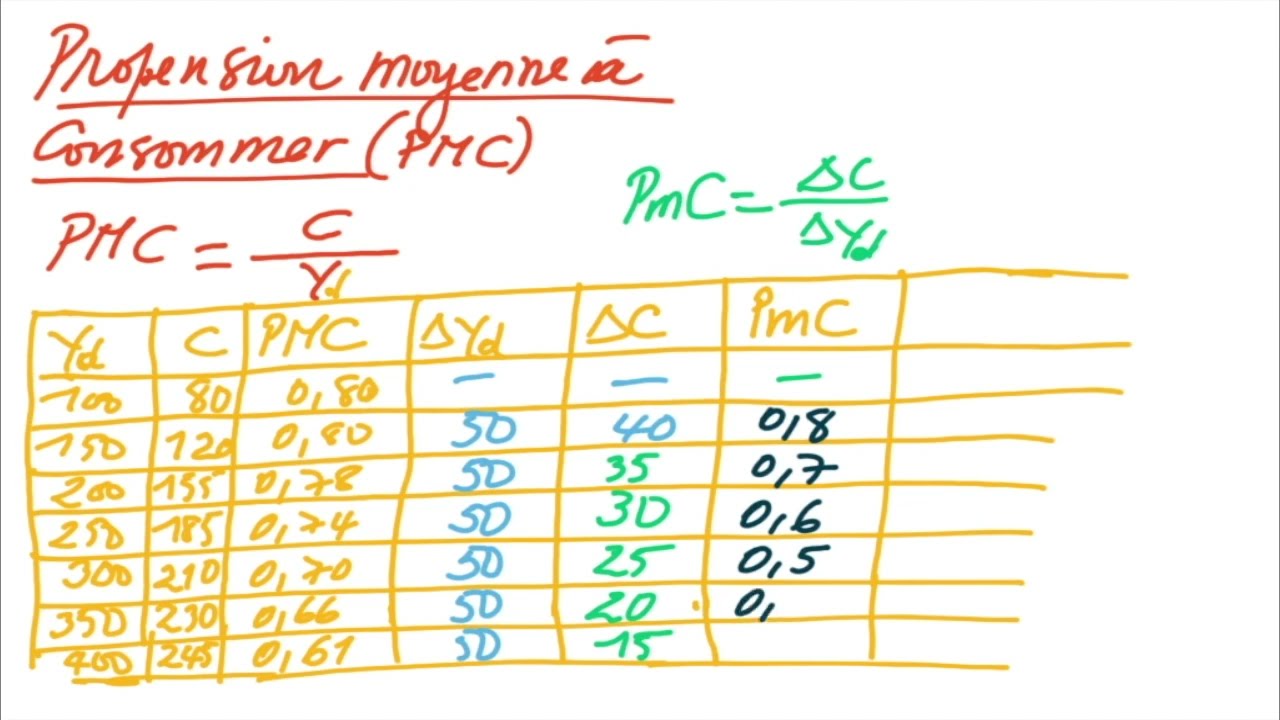 Propension moyenne à
Consommer (PMC)
PmC = ΔC / ΔYd
PMC = C / Yd
Yd C PMC ΔYd ΔC PmC
100 80 0,80 — — —
150 120 0,80 50 40 0,8
200 155 0,78 50 35 0,7
250 185 0,74 50 30 0,6
300 210 0,70 50 25 0,5
350 230 0,66 50 20 0,
400 245 0,61 50 15